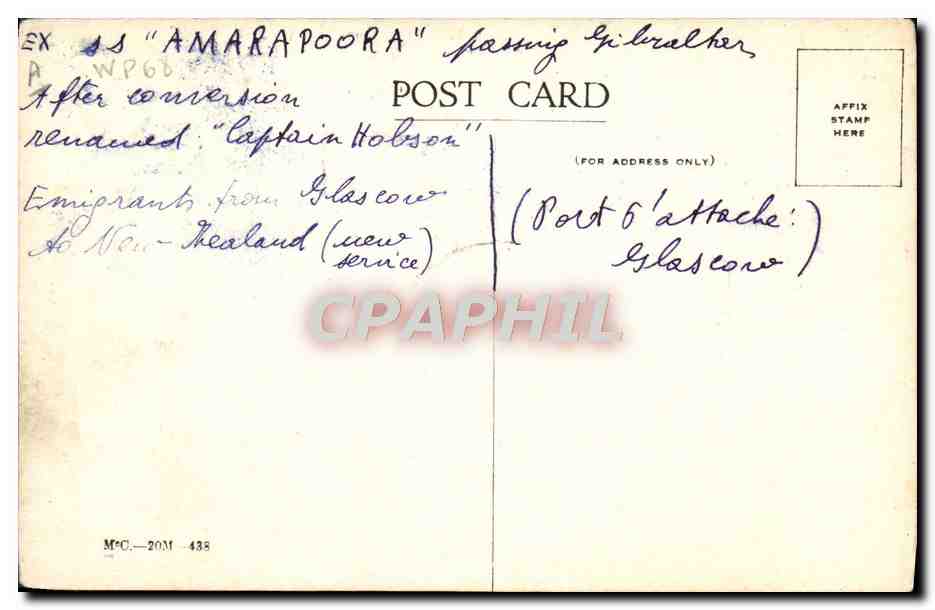 EX ss "AMARAPOORA" passing Gibralter
A WP68
After conversion
renamed "Captain Hobson"
POST CARD
AFFIX
STAMP
HERE
(FOR ADDRESS ONLY)
Emigrants from Glascow
to New-Zealand (new
service)
(Port d'attache:
Glascow)
CPAPHIL
McC.—20M 438